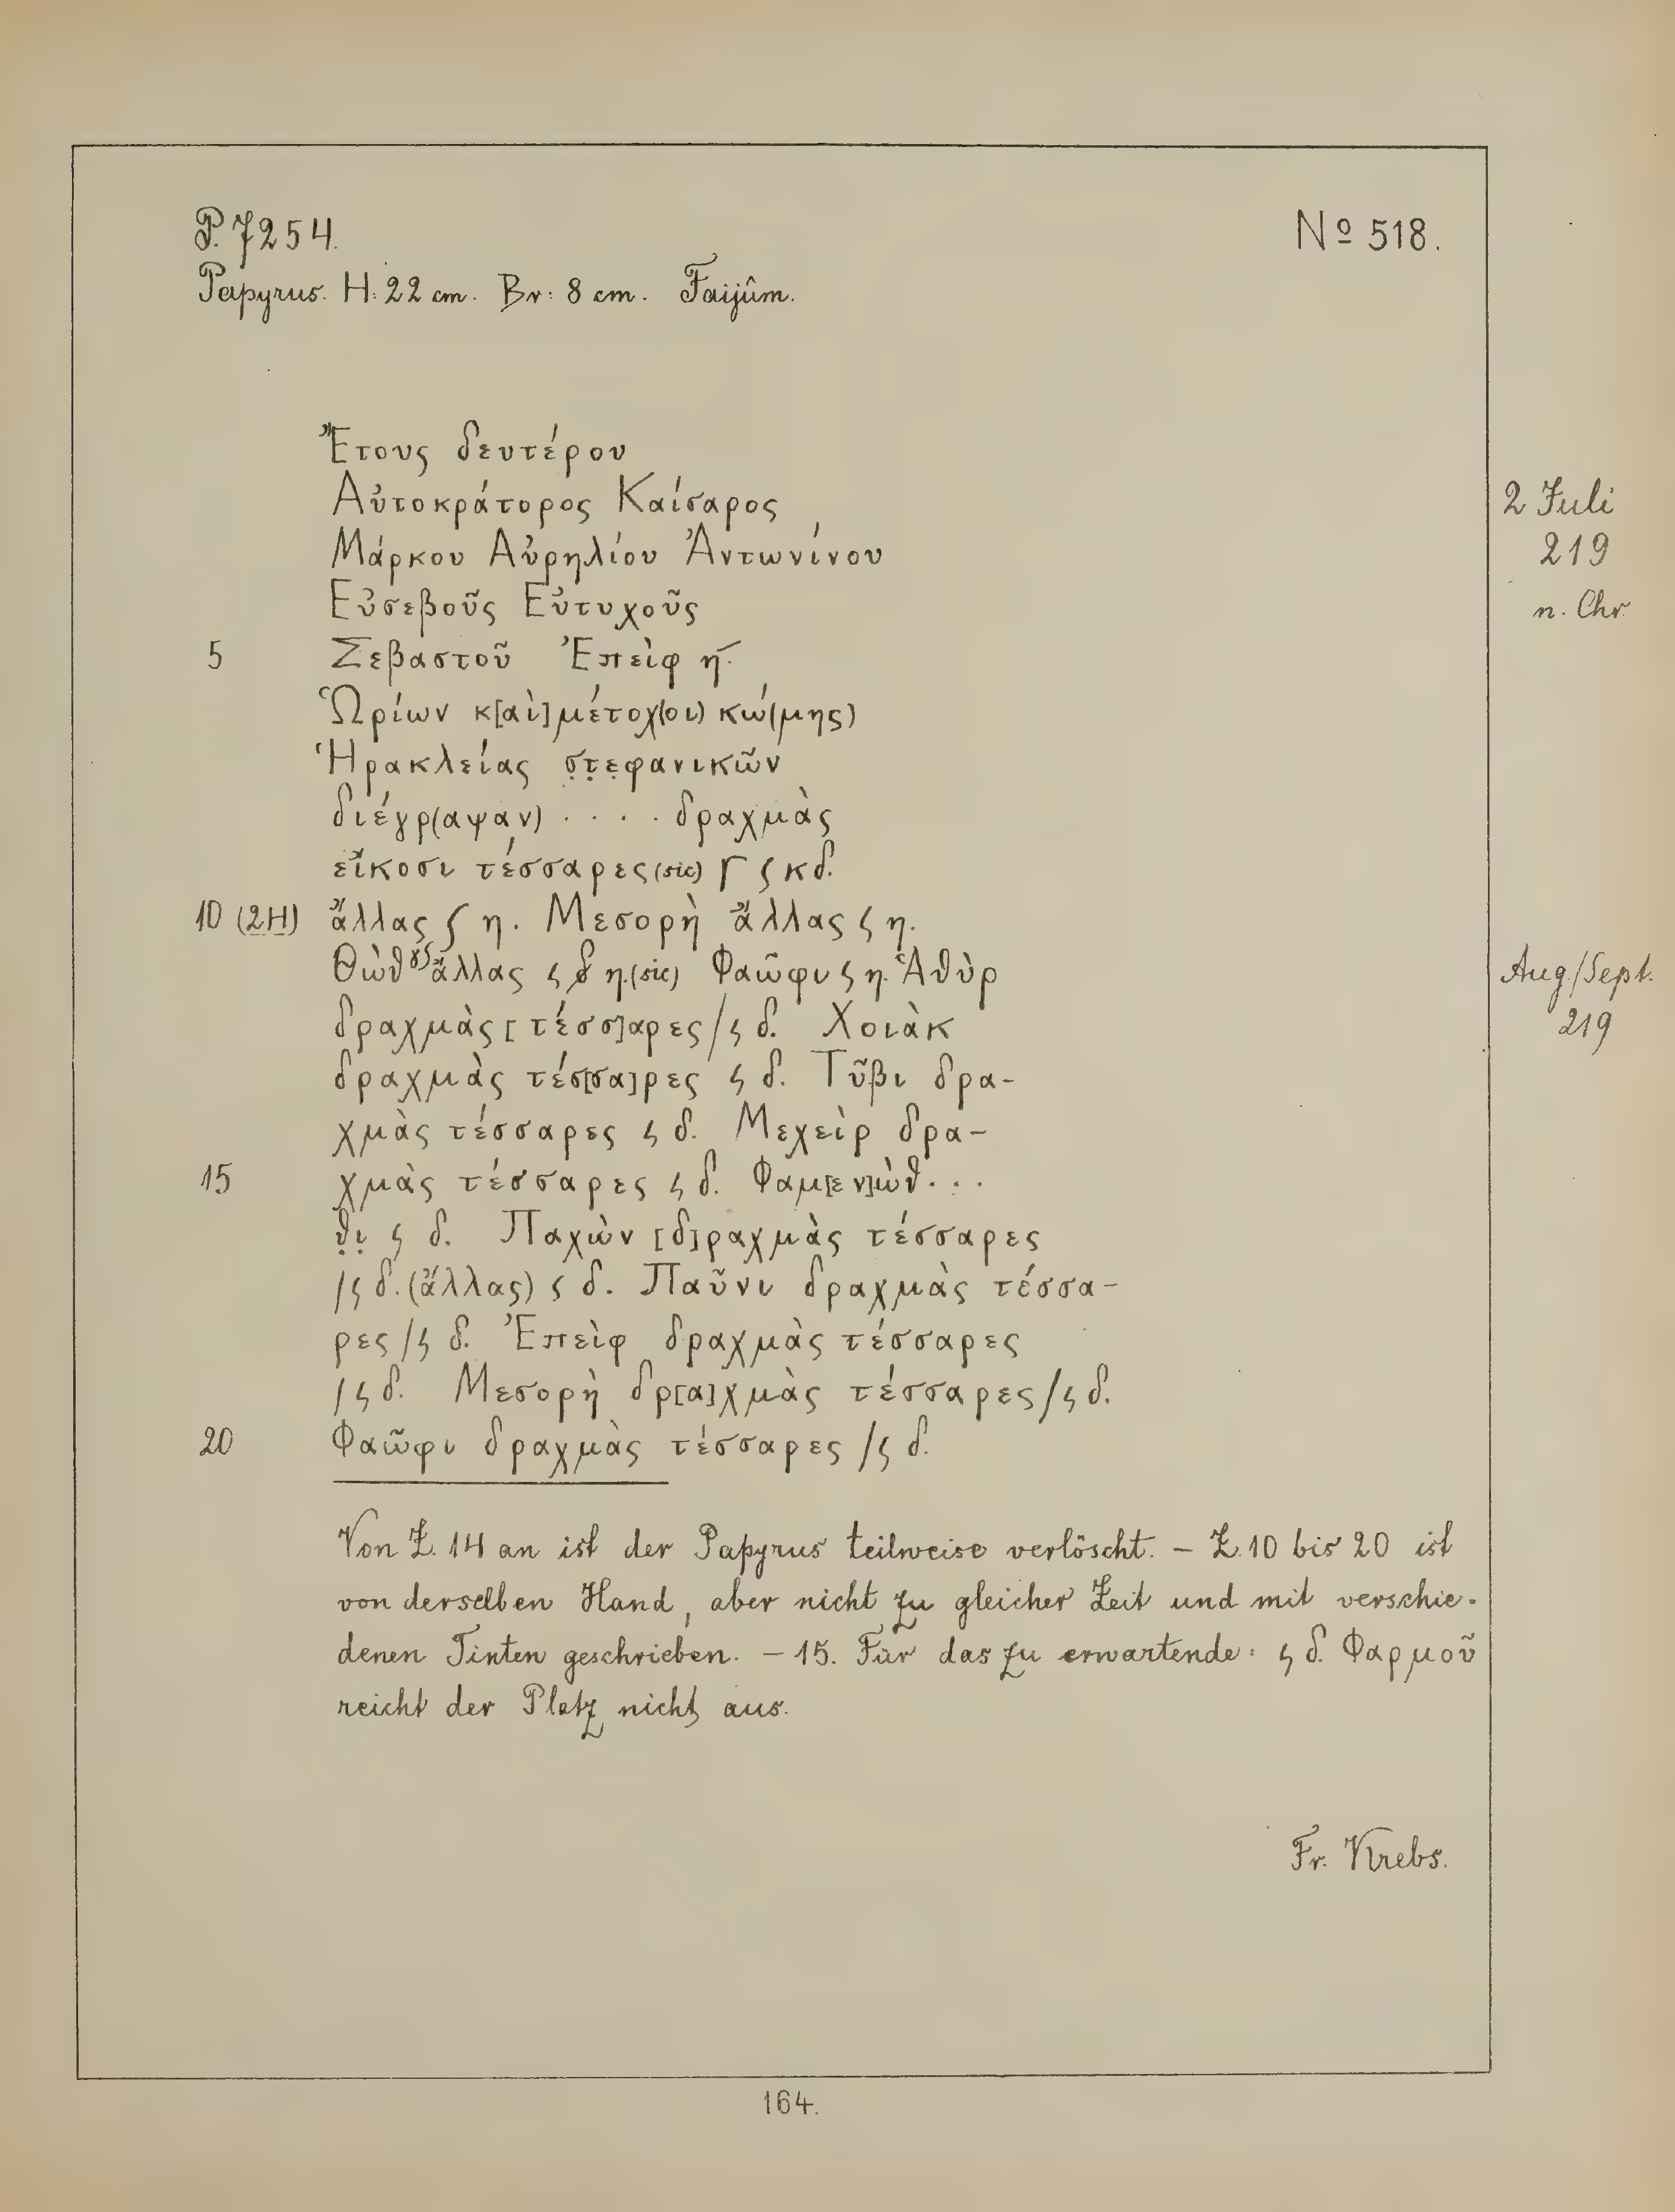 P. 7254.
Nº 518.
Papyrus. H: 22 cm. Br: 8 cm. Faijûm.
Ἔτους δευτέρου
Αὐτοκράτορος Καίσαρος
2 Juli
Μάρκου Αὐρηλίου Ἀντωνίνου
219
Εὐσεβοῦς Εὐτυχοῦς
n. Chr.
5 Σεβαστοῦ Ἐπεὶφ η̄.
Ὡρίων κ[αὶ] μέτοχ(οι) κώ(μης)
Ἡρακλείας σ̣τ̣ε̣φανικῶν
διέγρ(αψαν) . . . . δραχμὰς
εἴκοσι τέσσαρες (sic) 𐅄 ϛ κδ.
10 (2H) ἄλλας ϛ η. Μεσορὴ ἄλλας ϛ η.
Θὼθ γϛ ἄλλας ϛ δ η. (sic) Φαῶφι ϛ η. Ἁθὺρ
Aug./Sept.
δραχμὰς [τέσσ]αρες /ϛ δ. Χοιὰκ
219
δραχμὰς τέσ[σα]ρες ϛ δ. Τῦβι δρα-
χμὰς τέσσαρες ϛ δ. Μεχεὶρ δρα-
15 χμὰς τέσσαρες ϛ δ. Φαμ[εν]ὼθ . . .
θ̣ι̣ ϛ δ. Παχὼν [δ]ραχμὰς τέσσαρες
/ϛ δ. (ἄλλας) ϛ δ. Παῦνι δραχμὰς τέσσα-
ρες /ϛ δ. Ἐπεὶφ δραχμὰς τέσσαρες
/ϛ δ. Μεσορὴ δρ[α]χμὰς τέσσαρες /ϛ δ.
20 Φαῶφι δραχμὰς τέσσαρες /ϛ δ.
Von Z. 14 an ist der Papyrus teilweise verlöscht. – Z. 10 bis 20 ist
von derselben Hand, aber nicht zu gleicher Zeit und mit verschie-
denen Tinten geschrieben. – 15. Für das zu erwartende: ϛ δ. Φαρμοῦ
reicht der Platz nicht aus.
Fr. Krebs.
164.